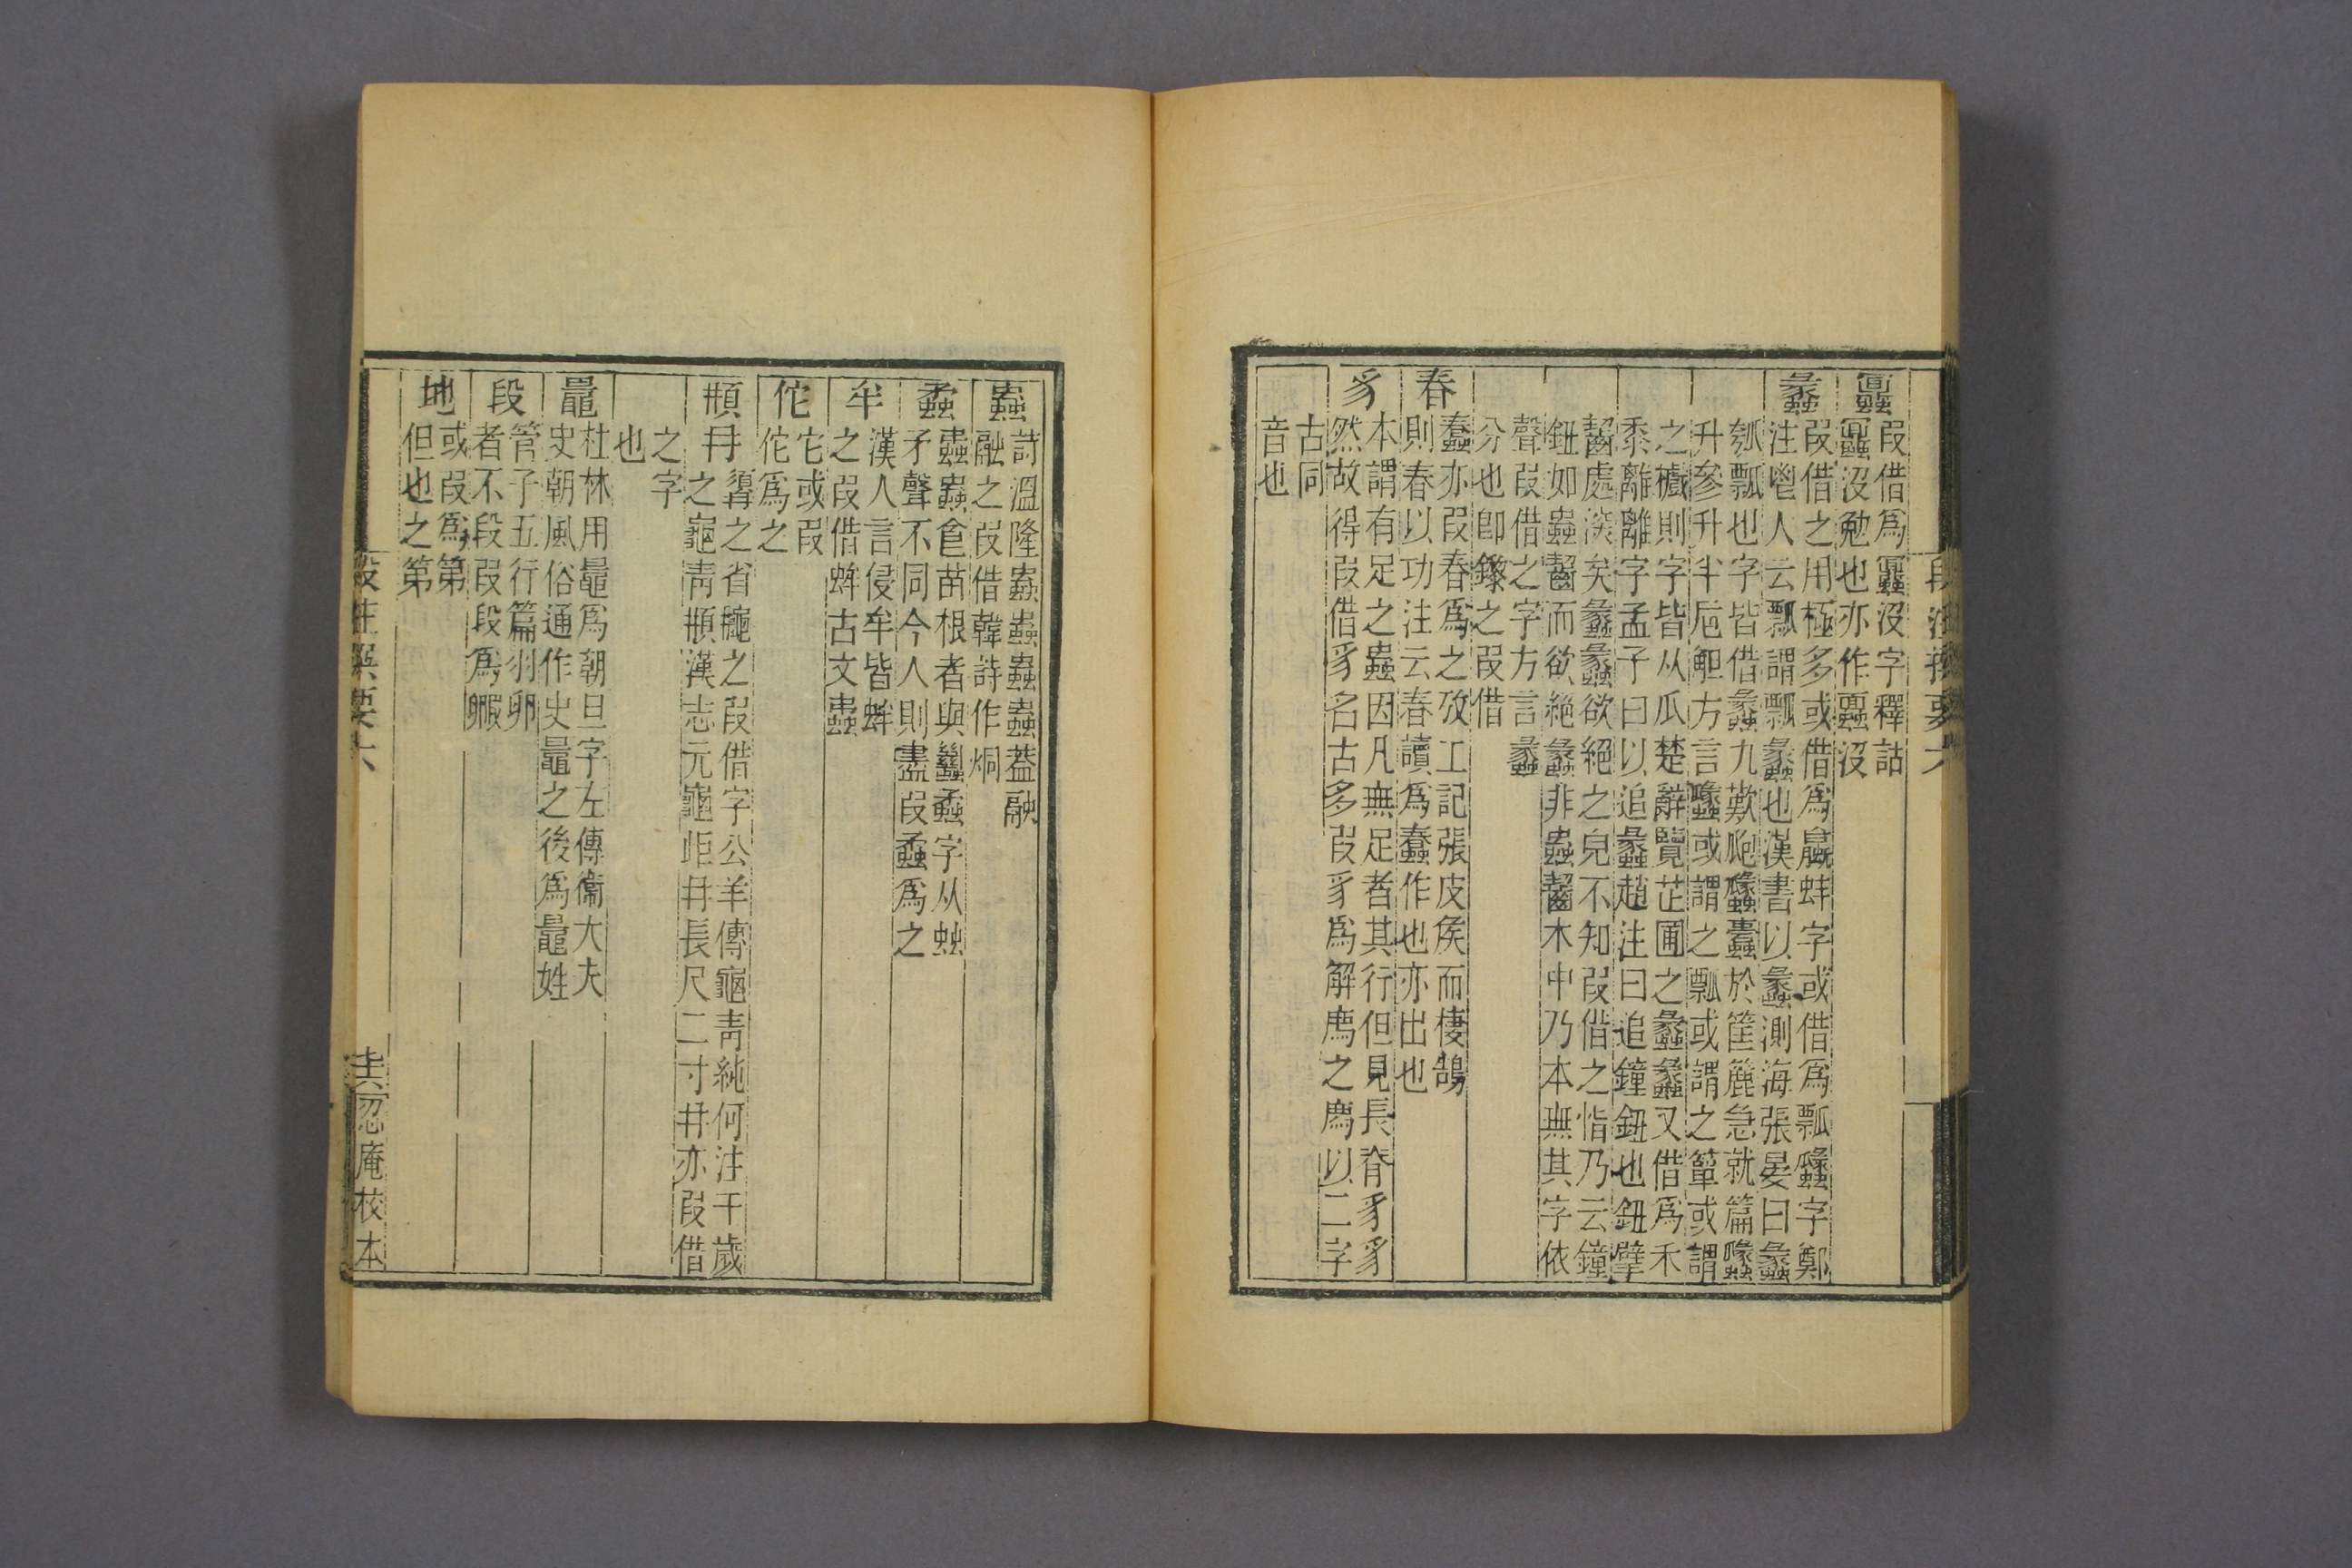 段注撰要六
蠠
叚借爲蠠沒字釋詁
蠠沒勉也亦作蠠沒
蠡
叚借之用極多或借爲蠃蚌字或借爲瓢字鄭
注鬯人云瓢謂瓢蠡也漢書以蠡測海張晏曰蠡
瓠瓢也字皆借蠡九歎瓟蠡蠹於筐簏急就篇蠡
升參升半卮觛方言或謂之瓢或謂之簞或謂
之㰕則字皆从瓜楚辭覽芷圃之蠡蠡又借爲禾
黍離離字孟子曰以追蠡趙注曰追鐘鈕也鈕擘
齧處深矣蠡蠡欲絕之皃不知叚借之恉乃云鐘
鈕如蟲齧而欲絕蠡非蟲齧木中乃本無其字依
聲叚借之字方言蠡
分也卽鑗之叚借
春
蠢亦叚春爲之攷工記張皮矦而棲鵠
則春以功注云春讀爲蠢作也亦出也
豸
本謂有足之蟲因凡無足者其行但見長脊豸豸
然故得叚借豸名古多叚豸爲解廌之廌以二字
古同
音也
蟲
詩溫隆蟲蟲蟲蟲蓋融
融之叚借韓詩作烔
蟊
蟲蟲食苗根者與蠿蟊字从䖵
矛聲不同今人則盡叚蟊爲之
牟
漢人言侵牟皆蛑
之叚借蛑古文蟊
佗
它或叚
佗爲之
䫇
冄䫇之省之叚借字公羊傳龜靑純何注千歲
之龜靑䫇漢志元龜岠冄長尺二寸冄亦叚借
之字
也
鼂
杜林用鼂爲朝旦字左傳衞大夫
史朝風俗通作史鼂之後爲鼂姓
段
管子五行篇羽卵
者不段叚段爲毈
地
或叚爲第
但也之第
段注撰要六
忍庵校本